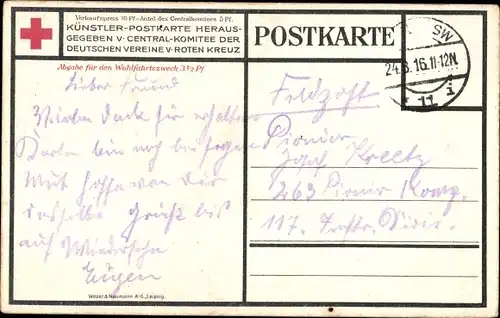 Verkaufspreis 10 Pf.-Anteil des Centralkomitees 5 Pf.
KÜNSTLER-POSTKARTE HERAUS-
GEGEBEN V·CENTRAL-KOMITEE DER
DEUTSCHEN VEREINE V·ROTEN KREUZ
Abgabe für den Wohlfahrtszweck 3½ Pf
POSTKARTE
SW
24.3.16.11-12N.
11
Lieber Freund
Vielen Dank für erhaltene
Karten bin noch bei
Mut hoffe von Dir
dasselbe Gruß bis
auf Wiedersehn
Eugen
Feldpost
Pionier
Josef Kreetz
263 Pionier Komp.
117. Inftr. Divis.
Wezel & Naumann A.-G., Leipzig.